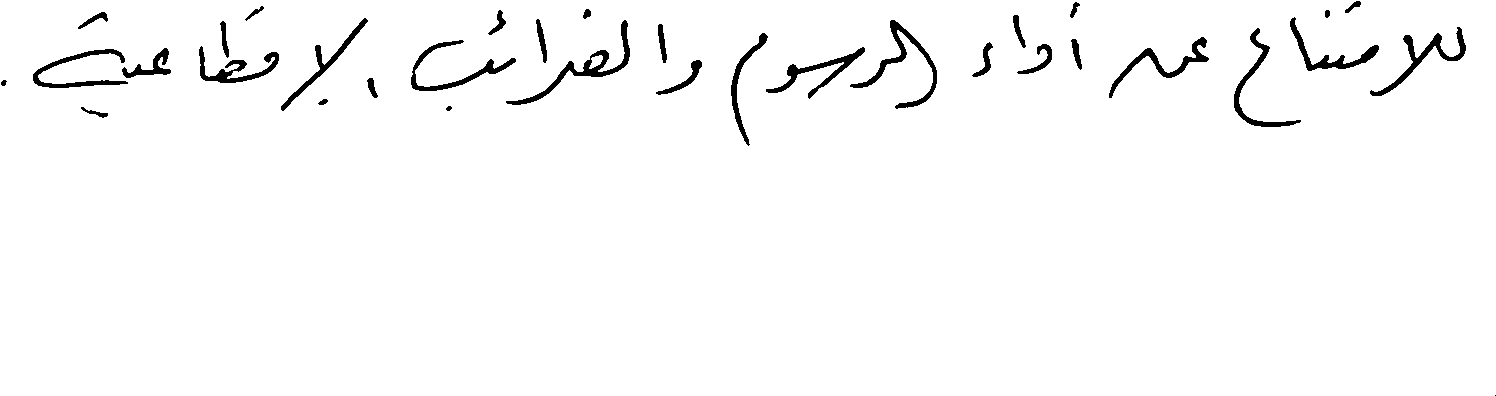 للامتناع عن أداء الرسوم والضرائب الإقطاعية.